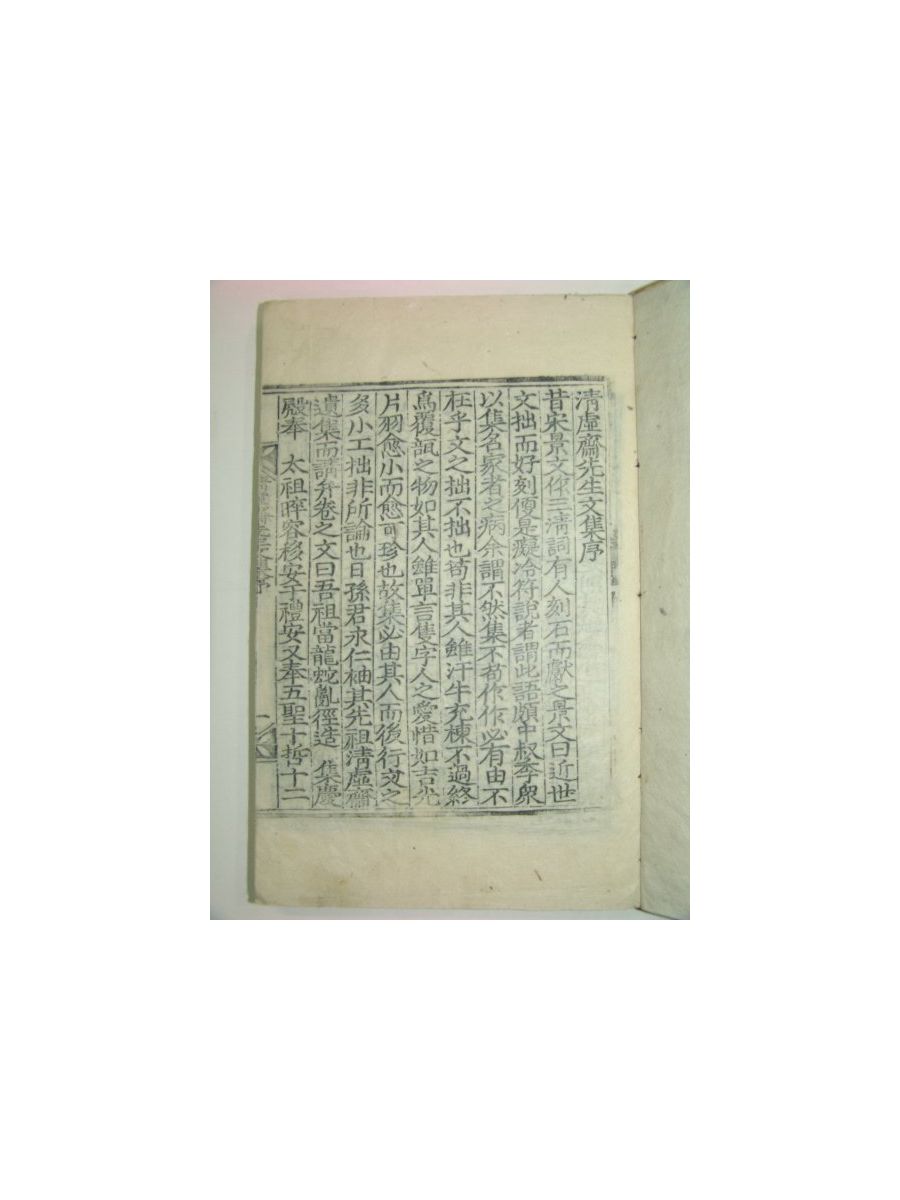 清虛齋先生文集序
昔宋景文作三清詞有人刻石而獻之景文曰近世
文拙而好刻便是癡冷符說者謂此語頗中叔季衆
以集名家者之病余謂不然集不苟作作必有由不
在乎文之拙不拙也苟非其人雖汗牛充棟不過終
爲覆瓿之物如其人雖單言隻字人之愛惜如吉光
片羽愈小而愈可珍也故集必由其人而後行文之
多小工拙非所論也日孫君永仁袖其先祖淸虛齋
遺集而請弁卷之文曰吾祖當龍蛇亂徑造 集慶
殿奉 太祖晬容移安于禮安又奉五聖十哲十二